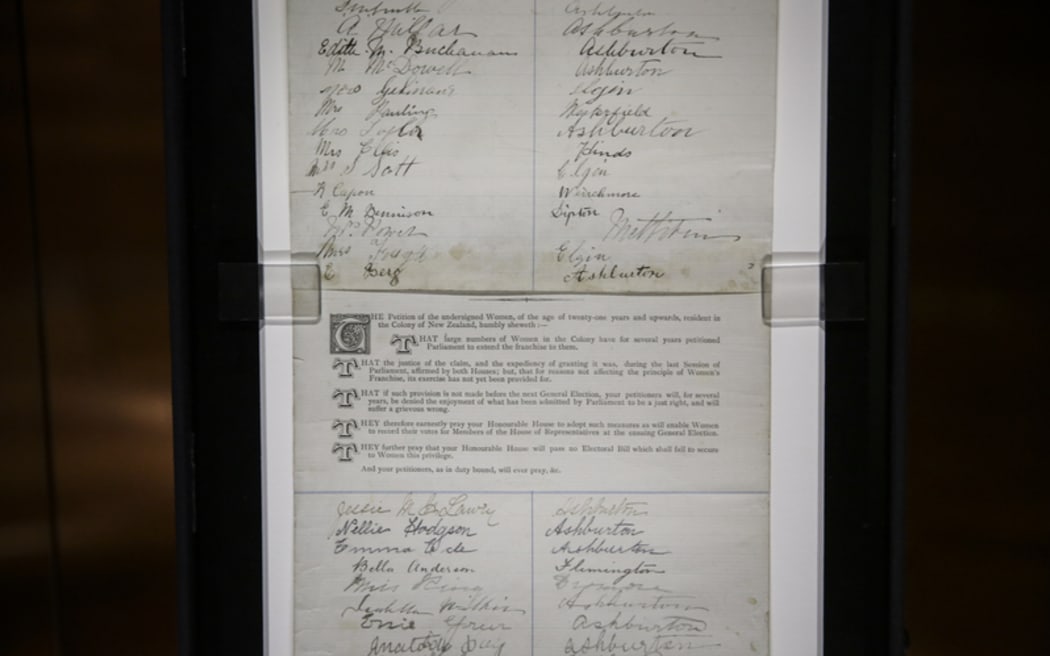 A. Millar Ashburton
Edith M. Buchanan Ashburton
M McDowell Ashburton
Mrs Elgin
Mrs Pauling
Mrs Taylor Ashburton
Mrs Ellis Hinds
Mrs S Scott Elgin
R Capon Winchmore
E M Dennison
Mrs Power
Mrs Elgin
E Berg Ashburton
THE Petition of the undersigned Women, of the age of twenty-one years and upwards, resident in
the Colony of New Zealand, humbly sheweth :—
THAT large numbers of Women in the Colony have for several years petitioned
Parliament to extend the franchise to them.
THAT the justice of the claim, and the expediency of granting it was, during the last Session of
Parliament, affirmed by both Houses; but, that for reasons not affecting the principle of Women's
Franchise, its exercise has not yet been provided for.
THAT if such provision is not made before the next General Election, your petitioners will, for several
years, be denied the enjoyment of what has been admitted by Parliament to be a just right, and will
suffer a grievous wrong.
THEY therefore earnestly pray your Honourable House to adopt such measures as will enable Women
to record their votes for Members of the House of Representatives at the ensuing General Election.
THEY further pray that your Honourable House will pass no Electoral Bill which shall fail to secure
to Women this privilege.
And your petitioners, as in duty bound, will ever pray, &c.
Jessie Lawry Ashburton
Nellie Hodgson Ashburton
Emma Ashburton
Bella Anderson Flemington
Miss King
Isabella Wilkin Ashburton
Ashburton
Ashburton